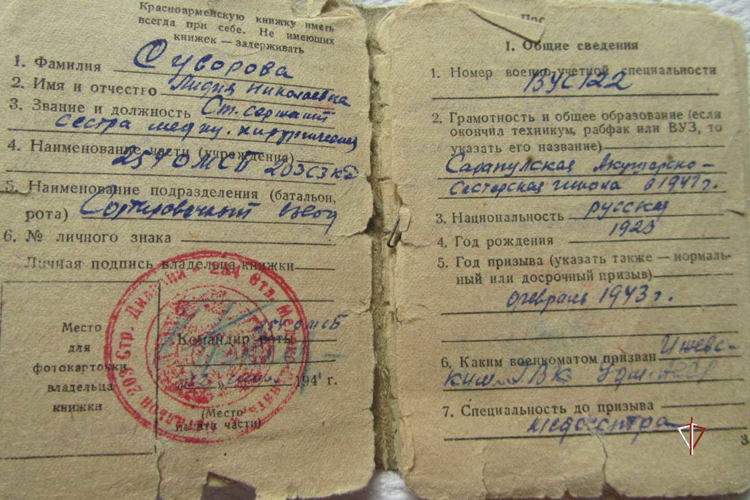 Красноармейскую книжку иметь
всегда при себе. Не имеющих
книжек — задерживать
1. Фамилия Суворова
2. Имя и отчество Лидия Николаевна
3. Звание и должность Ст. сержант
сестра медиц. хирургическая
4. Наименование части (учреждения)
254 ОМСБ 203СЗКД
5. Наименование подразделения (батальон,
рота) Сортировочный взвод
6. № личного знака
Личная подпись владельца книжки
Место
для
фотокарточки
владельца
книжки
254 ОМСБ
Командир роты
194 г.
(Место
печати части)
I. Общие сведения
1. Номер военно-учетной специальности
ВУС 122
2. Грамотность и общее образование (если
окончил техникум, рабфак или ВУЗ, то
указать его название)
Сарапулская Акушерско-
Сестерская школа в 1941 г.
3. Национальность русская
4. Год рождения 1923
5. Год призыва (указать также — нормаль-
ный или досрочный призыв)
февраль 1943 г.
6. Каким военкоматом призван Ижевс-
ким ГВК Удм. АССР
7. Специальность до призыва
медсестра
3